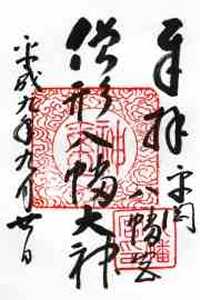 奉拝
平岡
八幡宮
僧形八幡大神
平成九年九月廿日